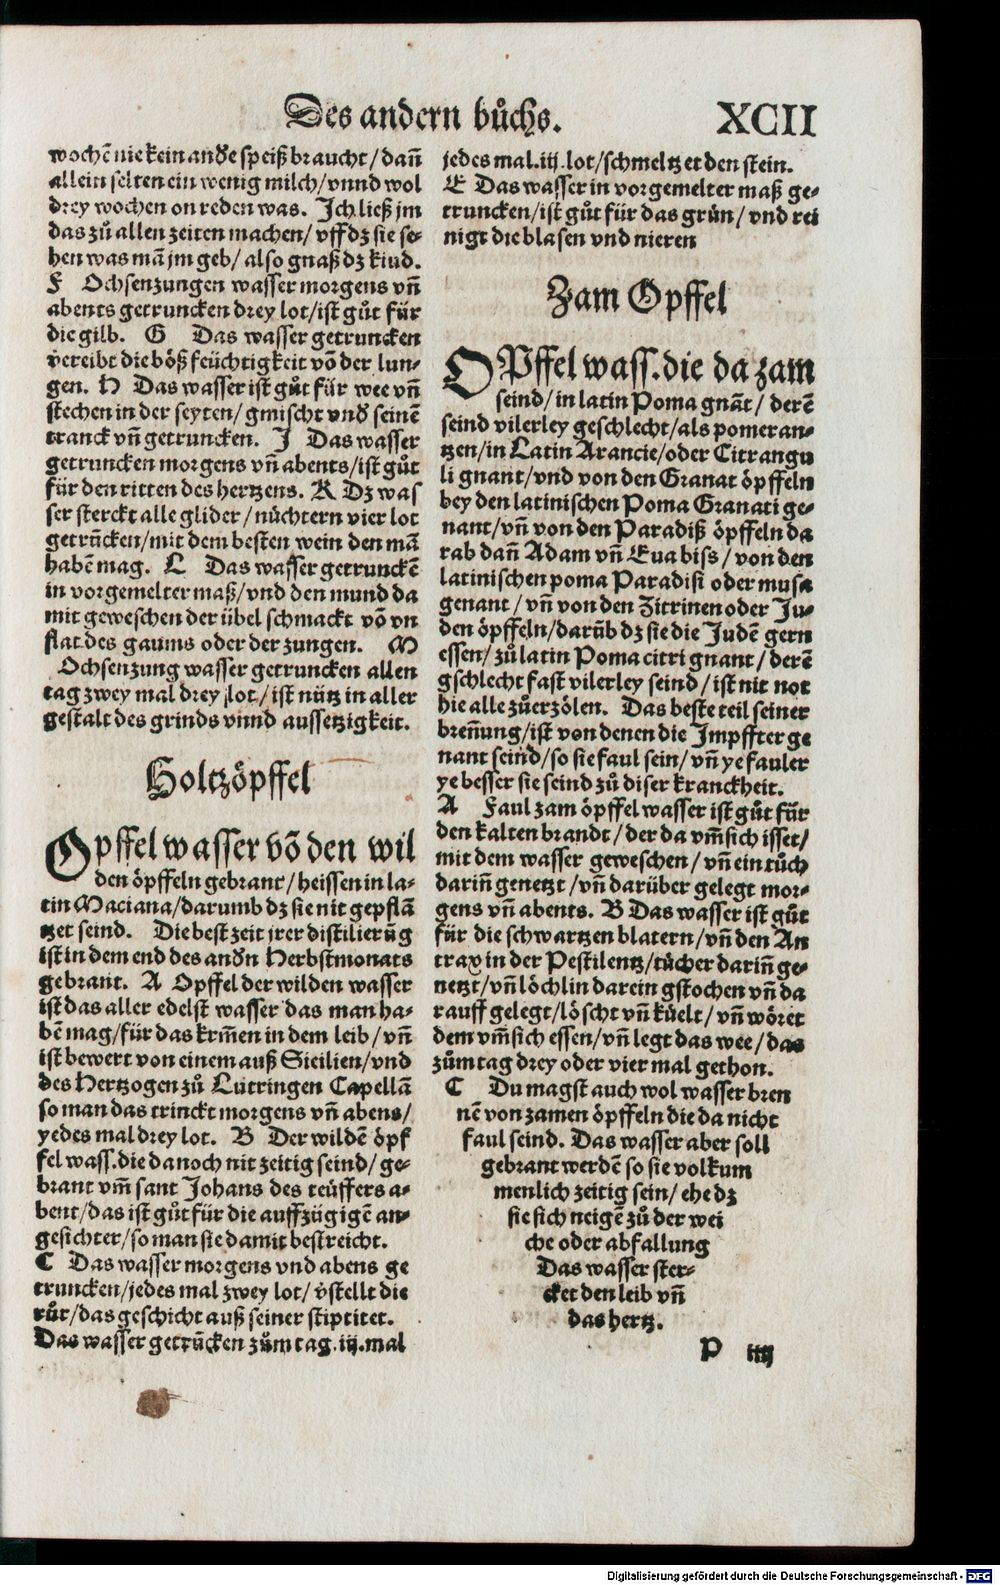 Des andern bůchs. XCII
wochē nie kein anďe speiß braucht / dañ
allein selten ein wenig milch / vnnd wol
drey wochen on reden was. Ich ließ jm
das zů allen zeiten machen / vff dz sie se-
hen was mā jm geb / also gnaß dz kind.
F Ochsenzungen wasser morgens vñ
abents getruncken drey lot / ist gůt für
die gilb. G Das wasser getruncken
vereibt die böß feüchtigkeit vō der lun-
gen. H Das wasser ist gůt für wee vñ
stechen in der seyten / gmischt vnď seinē
tranck vñ getruncken. J Das wasser
getruncken morgens vñ abents / ist gůt
für den ritten des hertzens. K Dz was
ser sterckt alle glider / nůchtern vier lot
getrūcken / mit dem besten wein den mā
habē mag. L Das wasser getrunckē
in vorgemelter maß / vnd den mund da
mit geweschen der übel schmackt vō vn
flat des gaums oder der zungen. M
Ochsenzung wasser getruncken allen
tag zwey mal drey lot / ist nütz in aller
gestalt des grinds vnnd aussetzigkeit.
Holtzöpffel
Opffel wasser vō den wil
den öpffeln gebrant / heissen in la-
tin Maciana / darumb dz sie nit gepflā
tzet seind. Die best zeit jrer distilierūg
ist in dem end des anďn Herbstmonats
gebrant. A Opffel der wilden wasser
ist das aller edelst wasser das man ha-
bē mag / für das krm̄en in dem leib / vñ
ist bewert von einem auß Sicilien / vnd
des Hertzogen zů Lutringen Capellā
so man das trinckt morgens vñ abens /
yedes mal drey lot. B Der wildē öpf
fel wass. die da noch nit zeitig seind / ge-
brant vm̄ sant Johans des teüffers a-
bent / das ist gůt für die auffzügigē an-
gesichter / so man sie damit bestreicht.
C Das wasser morgens vnd abens ge
truncken / jedes mal zwey lot / v̊stellt die
růr / das geschicht auß seiner stiptitet.
Das wasser getrūcken zům tag .iij. mal
jedes mal .iij. lot / schmeltzet den stein.
E Das wasser in vorgemelter maß ge-
truncken / ist gůt für das grün / vnd rei
nigt die blasen vnd nieren
Zam Opffel
OPffel wass. die da zam
seind / in latin Poma gnāt / derē
seind vilerley geschlecht / als pomeran-
tzen / in Latin Arancie / oder Citrangu
li gnant / vnd von den Granat öpffeln
bey den latinischen Poma Granati ge-
nant / vñ von den Paradiß öpffeln da
rab dañ Adam vñ Eua biss / von den
latinischen poma Paradisi oder musa
genant / vñ von den Zitrinen oder Ju-
den öpffeln / darūb dz sie die Judē gern
essen / zů latin Poma citri gnant / derē
gschlecht fast vilerley seind / ist nit not
hie alle zůerzölen. Das beste teil seiner
breñung / ist von denen die Jmpffter ge
nant seind / so sie faul sein / vñ ye fauler
ye besser sie seind zů diser kranckheit.
A Faul zam öpffel wasser ist gůt für
den kalten brandt / der da vm̄ sich isset /
mit dem wasser geweschen / vñ ein tůch
dariñ genetzt / vñ darüber gelegt mor-
gens vñ abents. B Das wasser ist gůt
für die schwartzen blatern / vñ den An
trax in der Pestilentz / tücher dariñ ge-
netzt / vñ löchlin darein gstochen vñ da
rauff gelegt / löscht vñ küelt / vñ wöret
dem vm̄sich essen / vñ legt das wee / das
zům tag drey oder vier mal gethon.
C Du magst auch wol wasser bren
nē von zamen öpffeln die da nicht
faul seind. Das wasser aber soll
gebrant werdē so sie volkum
menlich zeitig sein / ehe dz
sie sich neigē zů der wei
che oder abfallung
Das wasser ster-
cket den leib vñ
das hertz.
P iiij
Digitalisierung gefördert durch die Deutsche Forschungsgemeinschaft - DFG